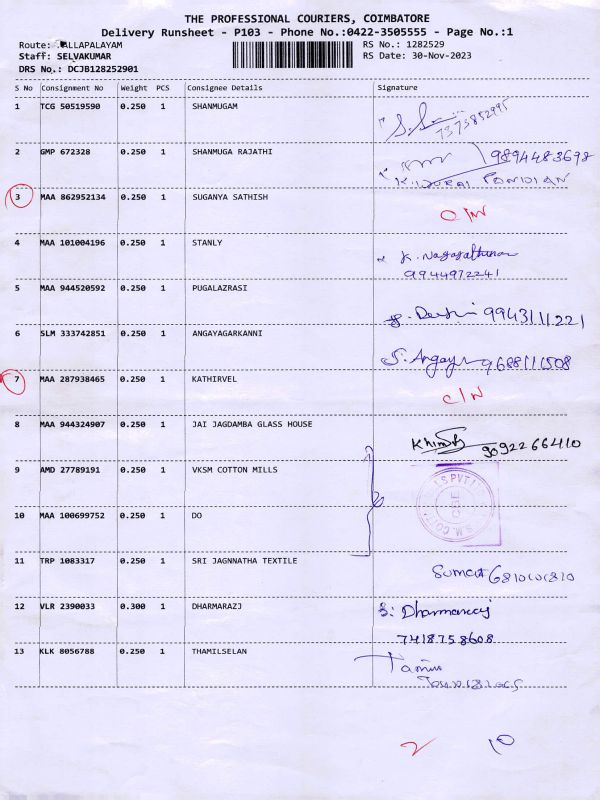 THE PROFESSIONAL COURIERS, COIMBATORE
Delivery Runsheet - P103 - Phone No.:0422-3505555 - Page No.:1
Route: ALLAPALAYAM RS No.: 1282529
Staff: SELVAKUMAR RS Date: 30-Nov-2023
DRS No.: DCJB128252901
S No Consignment No Weight PCS Consignee Details Signature
1 TCG 50519590 0.250 1 SHANMUGAM
7373852995
2 GMP 672328 0.250 1 SHANMUGA RAJATHI 9894483698
3 MAA 862952134 0.250 1 SUGANYA SATHISH
4 MAA 101004196 0.250 1 STANLY
9944972241
5 MAA 944520592 0.250 1 PUGALAZRASI
9943111221
6 SLM 333742851 0.250 1 ANGAYAGARKANNI
7 MAA 287938465 0.250 1 KATHIRVEL
8 MAA 944324907 0.250 1 JAI JAGDAMBA GLASS HOUSE
9092266410
9 AMD 27789191 0.250 1 VKSM COTTON MILLS
10 MAA 100699752 0.250 1 DO
11 TRP 1083317 0.250 1 SRI JAGNNATHA TEXTILE
12 VLR 2390033 0.300 1 DHARMARAZJ
7418758608
13 KLK 8056788 0.250 1 THAMILSELAN
2 10